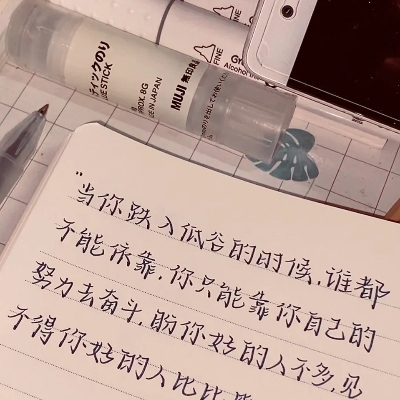 ティックのり
UE STICK
ROX. 8G
E IN JAPAN
MUJI 無印良
FINE
Alcohol
FINE
"当你跌入低谷的时候，谁都
不能依靠，你只能靠你自己的
努力去奋斗，盼你好的人不多，见
不得你好的人比比